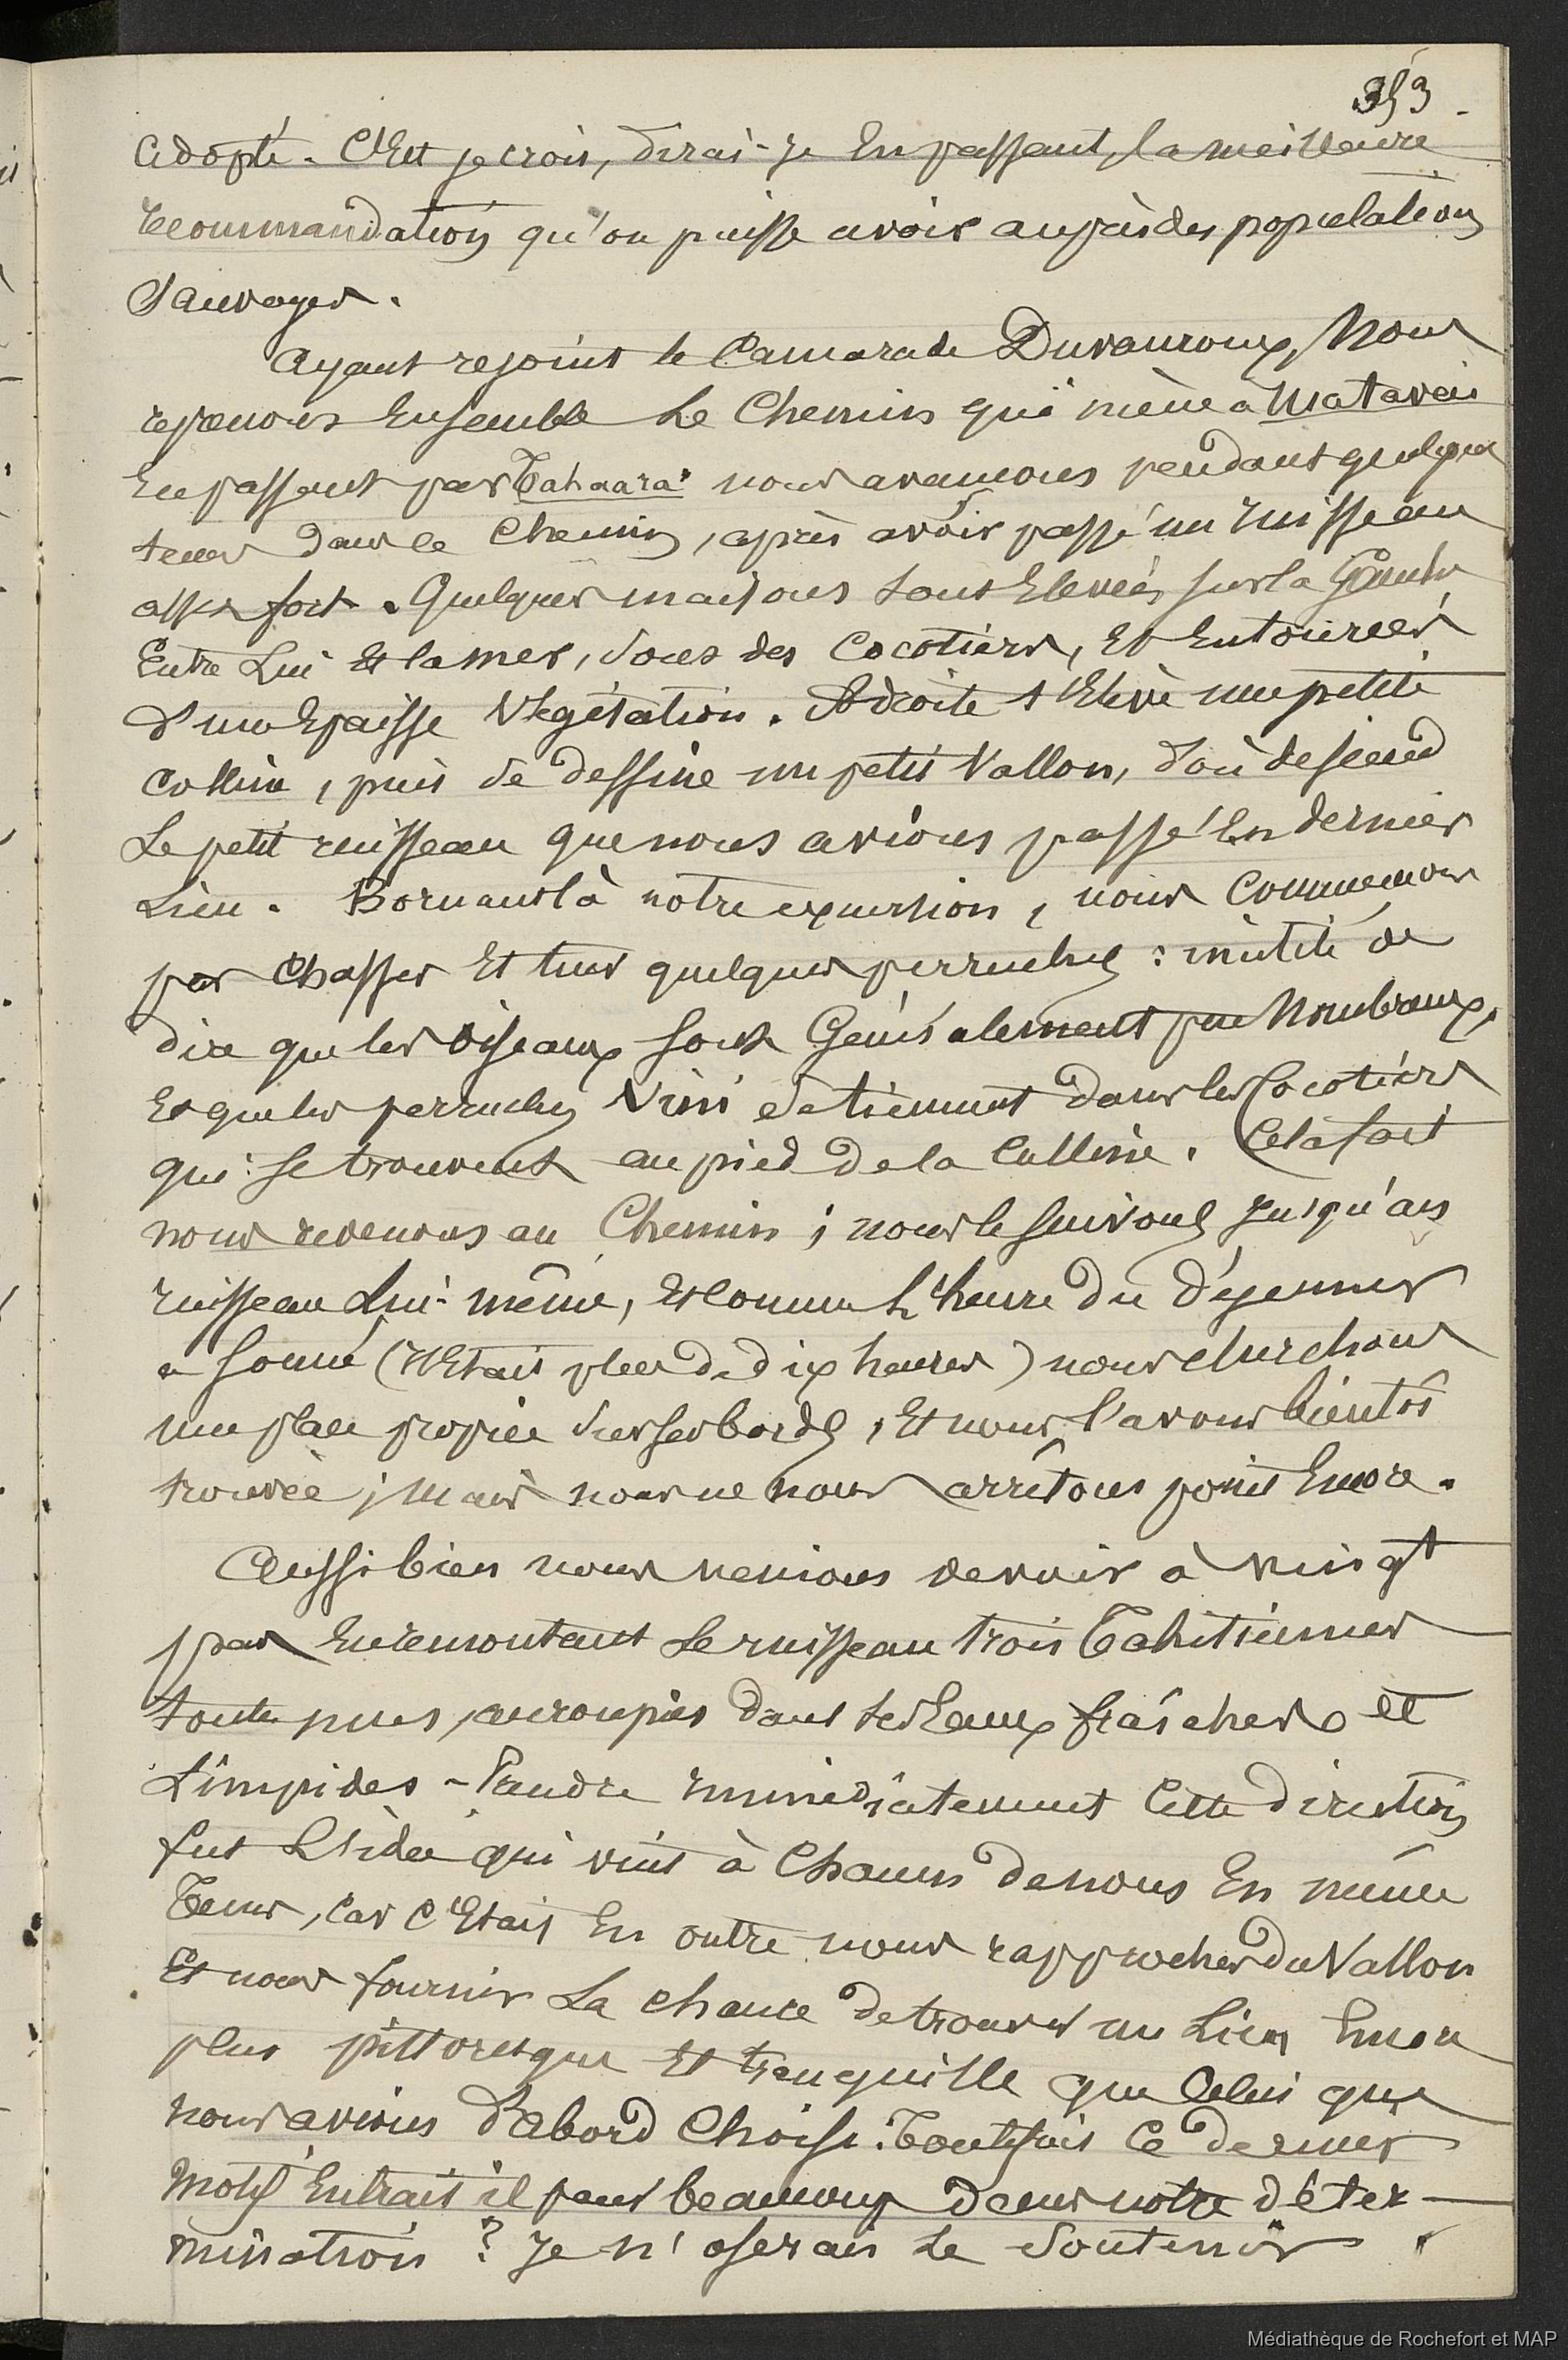 353
adopté. C'Est je crois, dirai-je En passant, la meilleure
recommandation qu'on puisse avoir auprès des populations
Sauvages.
Ayant rejoint le Camarade Duvauroux, Nous
reprenons Ensemble Le Chemin qui mène à Matavai
En passant par Tahaara. nous avancons pendant quelque
tems dans le Chemin, après avoir passé un ruisseau
assez fort. Quelques maisons sont Elevées sur la Gauche,
Entre Lui Et la mer, sous des Cocotiers, Et Entourées
d'une Epaisse Végétation. A droite s'Elève une petite
Colline, puis se dessine un petit Vallon, d'où descend
Le petit ruisseau que nous avions passé En dernier
Lieu. Bornant là notre excursion, nous Commençons
par Chasser Et tuer quelques perruches : inutile de
dire que les oiseaux sont Généralement peu Nombreux,
Et que les perruches Vini se tiennent dans les Cocotiers
qui se trouvent au pied de la Colline. Cela fait
nous revenons au Chemin ; nous le suivons jusqu'au
ruisseau Lui-même, Et Comme L'heure du Déjeuner
a sonné (Il Etait plus de dix heures) nous cherchons
une place propice sur ses bords, Et nous l'avons bientôt
trouvée ; Mais nous ne nous arrêtons point Encore.
Aussi bien nous venions de voir à vingt
pas En remontant Le ruisseau trois Tahitiennes
toutes nues, accroupies dans ses Eaux fraîches et
Limpides - Prendre immédiatement Cette direction
fut L'idée qui vint à Chacun de nous En même
Tems, Car C'Etait En outre nous rapprocher du Vallon
Et nous fournir La chance de trouver un Lieu Encore
plus pittoresque Et tranquille que Celui que
nous avions D'abord Choisi. Toutefois Ce dernier
Motif Entrait il pour beaucoup dans notre déter-
mination ? Je n'oserais Le Soutenir.
Médiathèque de Rochefort et MAP